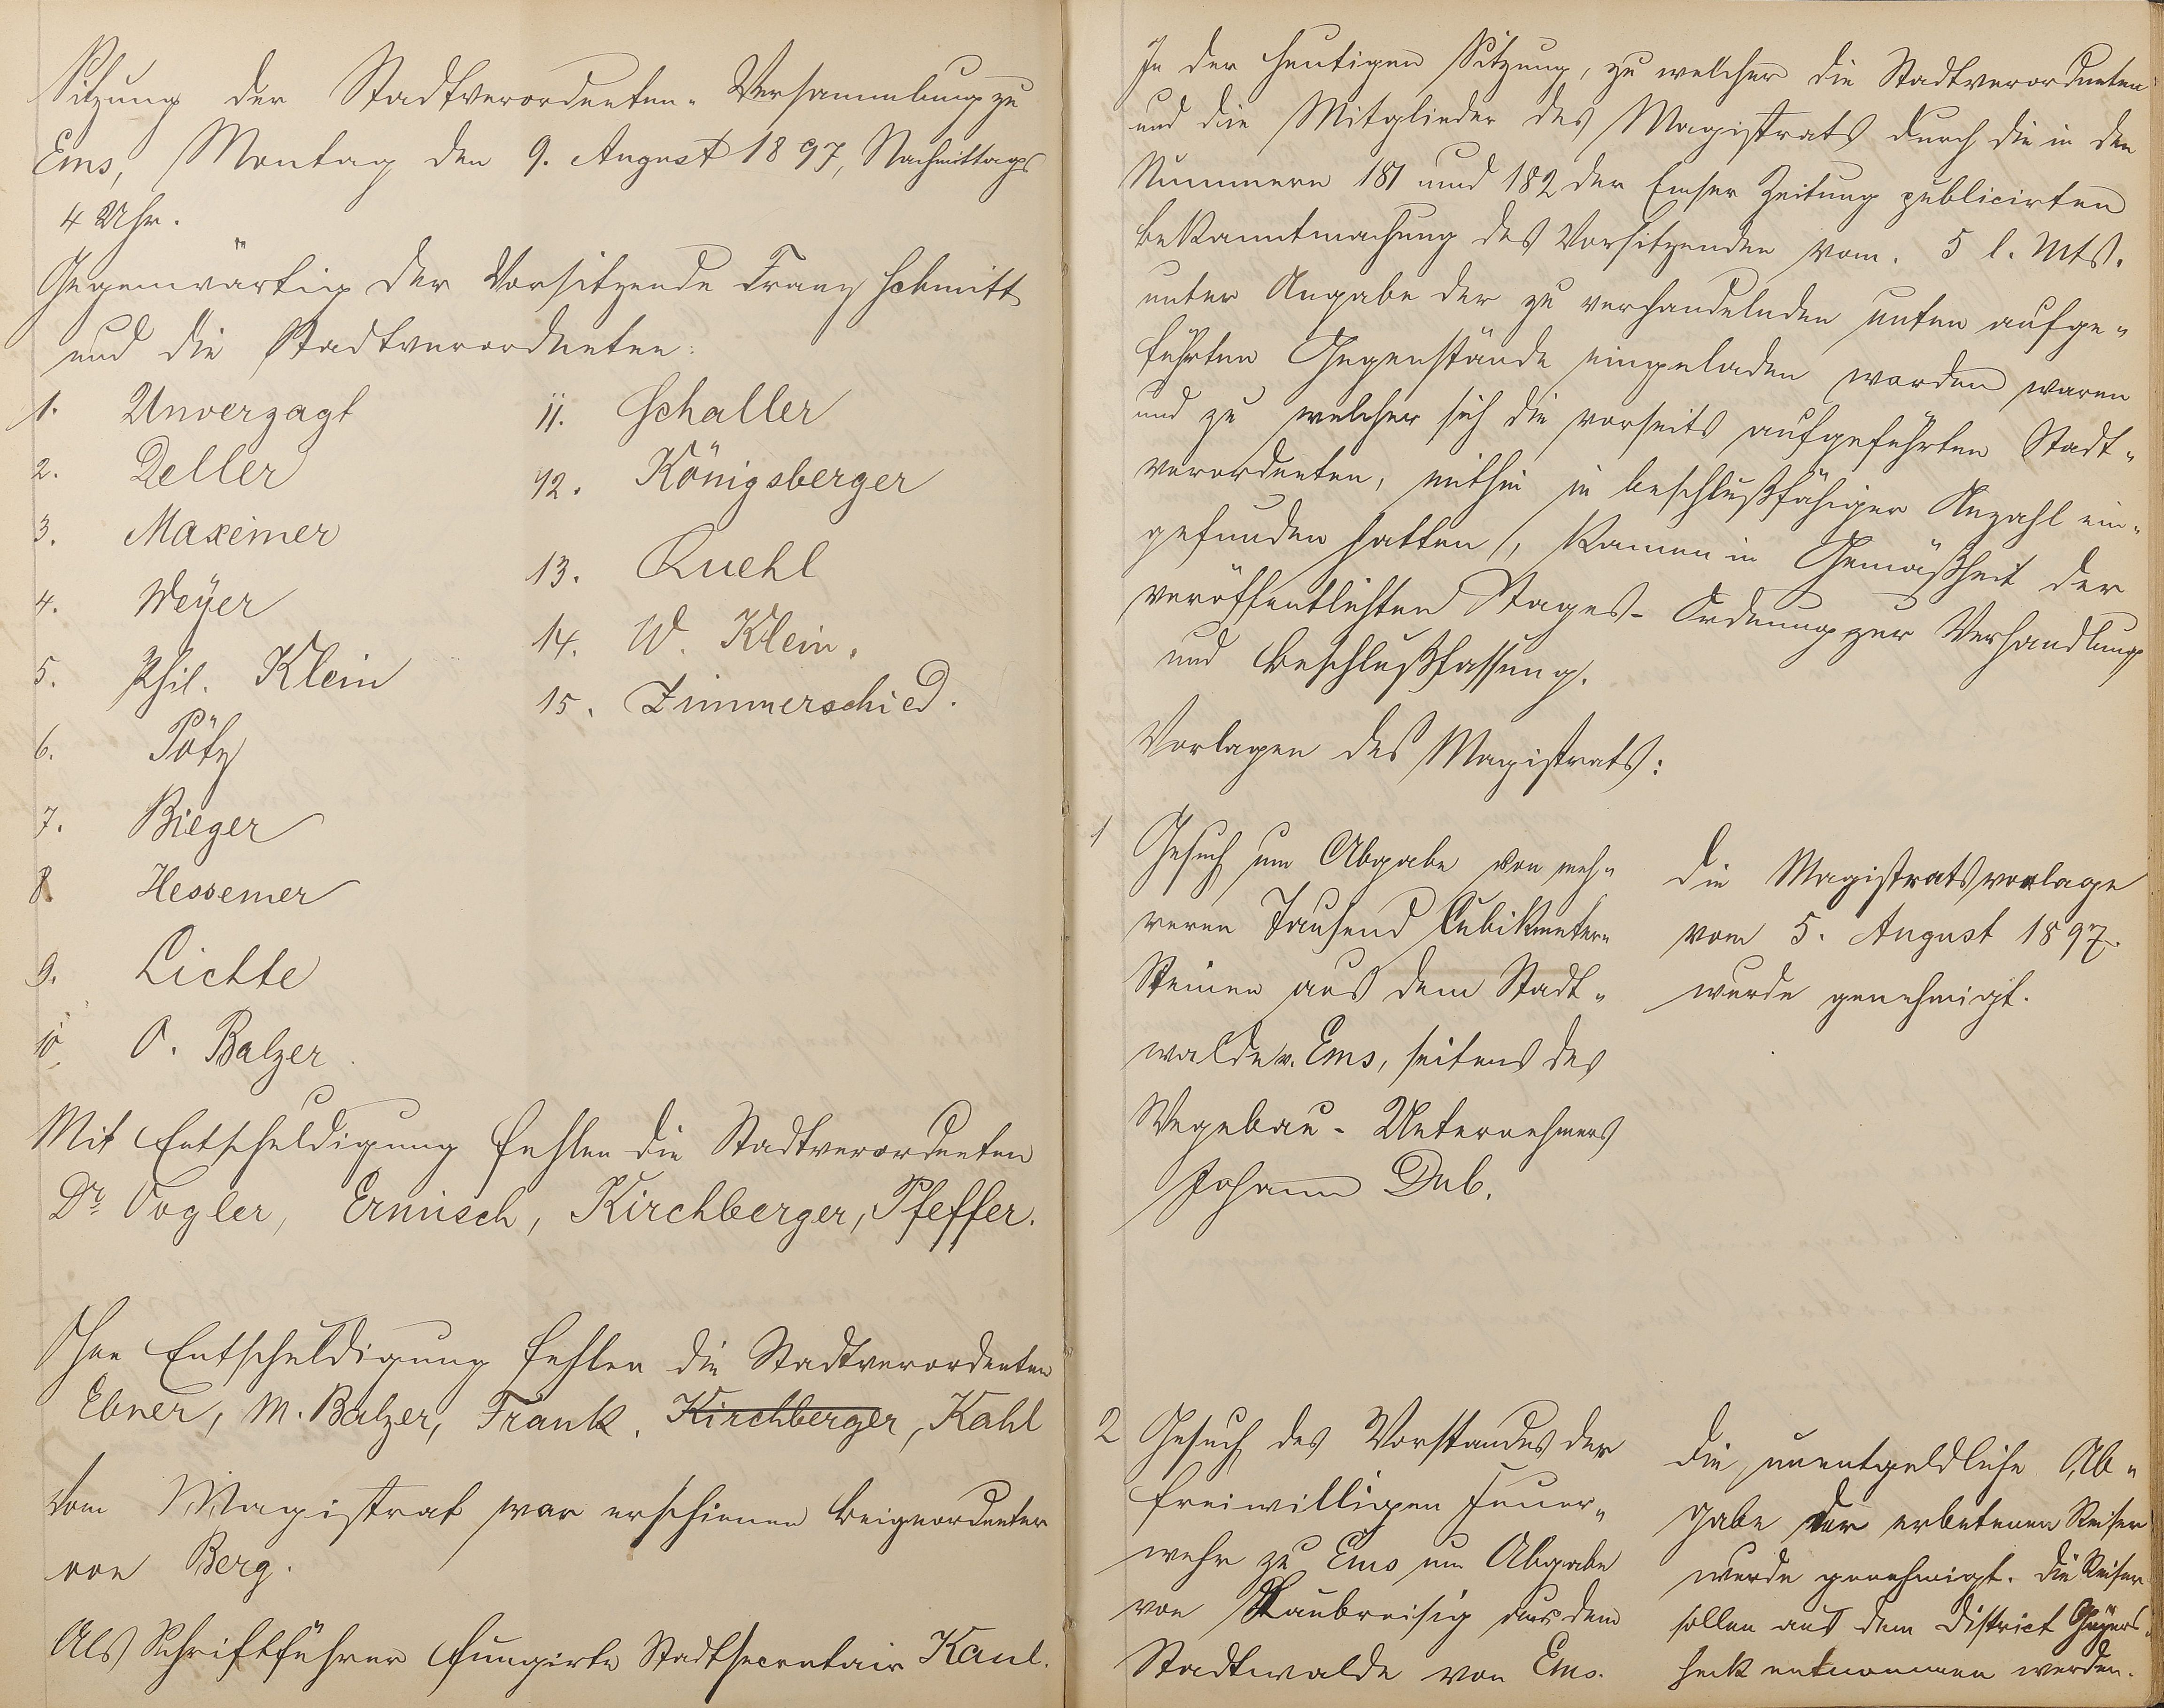 Sitzung der Stadtverordneten-Versammlung zu
Ems, Montag den 9. August 1897, Nachmittags
4 Uhr.
Gegenwärtig der Vorsitzende Franz Schmitt
und die Stadtverordneten:
1. Unverzagt
2. Zeller
3. Maxeiner
4. Weyer
5. Phil. Klein
6. Pötz
7. Bieger
8. Hessemer
9. Lichte
10. O. Balzer
11. Schaller
12. Königsberger
13. Ruehl
14. W. Klein.
15. Zimmerschied.
Mit Entschuldigung fehlen die Stadtverordneten
Dr. Vogler, Ermisch, Kirchberger, Pfeffer.
Ohne Entschuldigung fehlen die Stadtverordneten
Ebner, M. Balzer, Frank, Kirchberger, Kahl
Vom Magistrat war erschienen Beigeordneter
von Berg.
Als Schriftführer fungirte Stadtsecretair Kaul.
In der heutigen Sitzung, zu welcher die Stadtverordneten
und die Mitglieder des Magistrats durch die in den
Nummern 181 und 182 der Emser Zeitung publicirten
Bekanntmachung des Vorsitzenden vom. 5 l. Mts.
unter Angabe der zu verhandelnden unten aufge-
führten Gegenstände eingeladen worden waren
und zu welcher sich die vorseits aufgeführten Stadt-
verordneten, mithin in beschlußfähiger Anzahl ein-
gefunden hatten, kamen in Gemäßheit der
veröffentlichten Tages-Ordnung zur Verhandlung
und Beschlußfassung.
Vorlagen des Magistrats:
1 Gesuch um Abgabe von meh-
reren Tausend Cubikmetern
Steinen aus dem Stadt-
walde v. Ems, seitens des
Wegebau-Unternehmers
Johann Dub.
Die Magistratsvorlage
vom 5. August 1897.
wurde genehmigt.
2 Gesuch des Vorstandes der
freiwilligen Feuer-
wehr zu Ems um Abgabe
von Laubreisig aus dem
Stadtwalde von Ems.
Die unentgeldliche Ab-
gabe der erbetenen Reiser
wurde genehmigt. Die Reiser
sollen aus dem District Geyers-
heck entnommen werden.